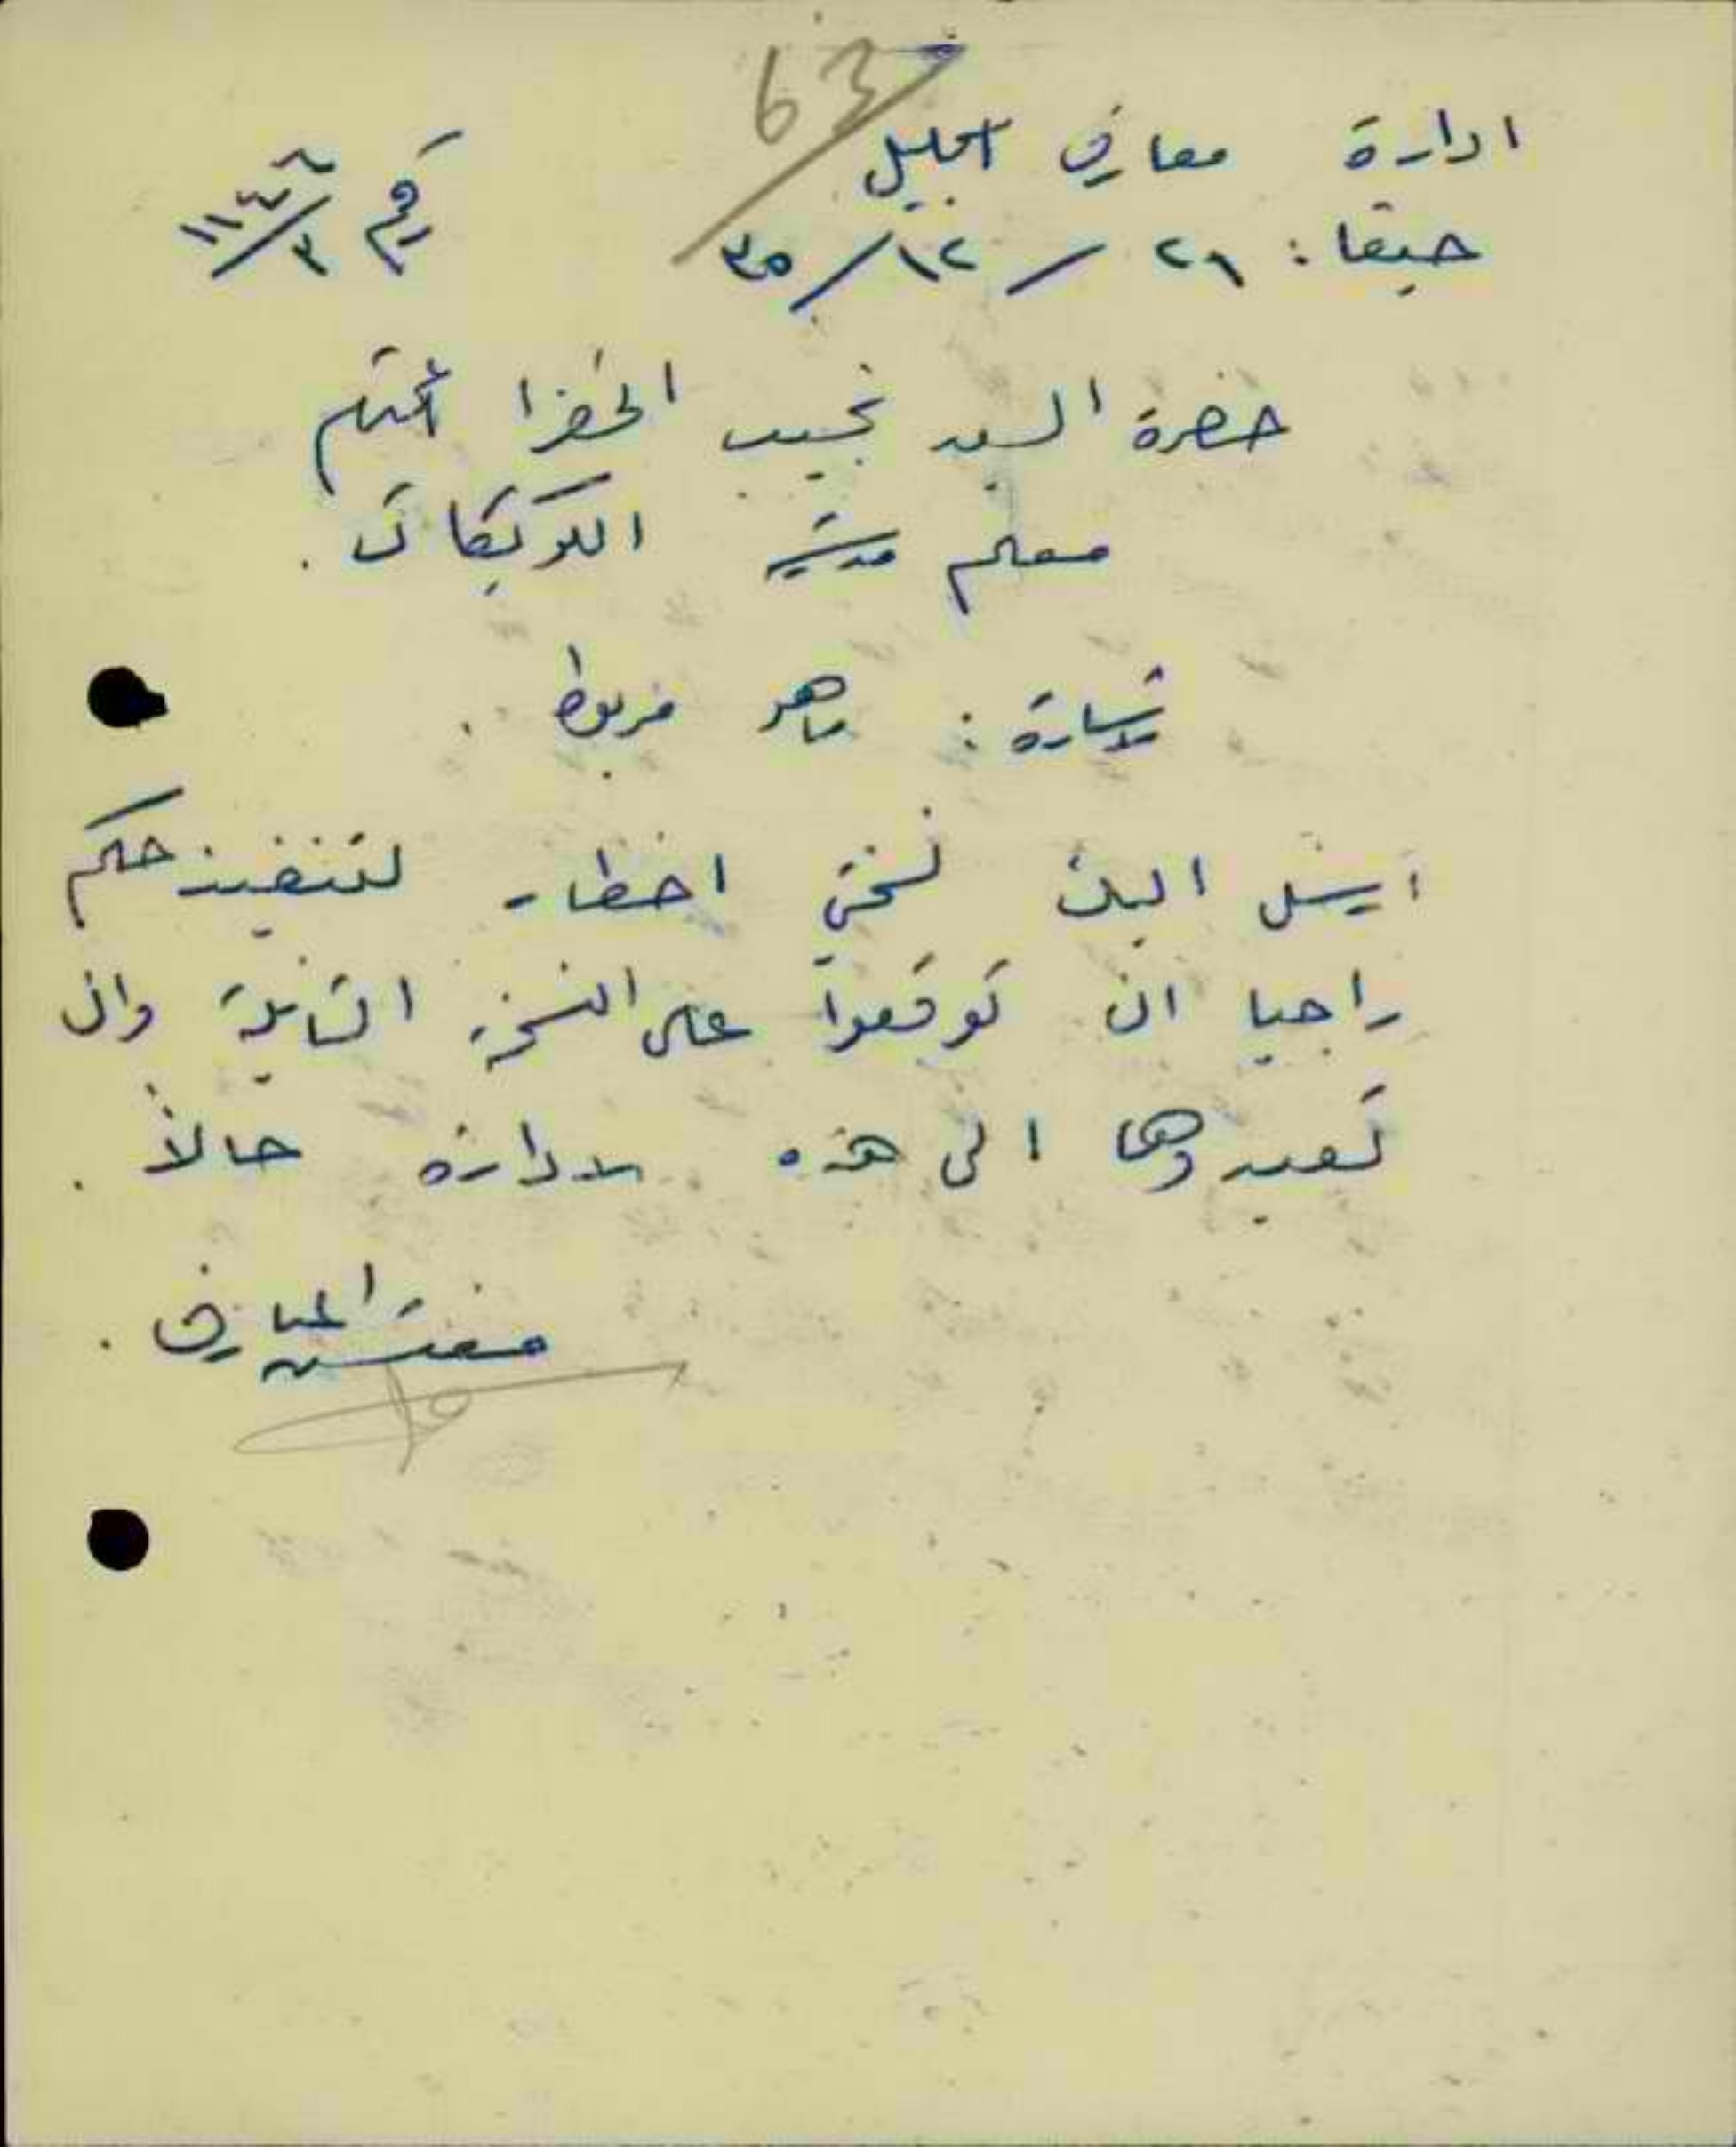 63
ادارة معارف الجليل
حيفا: ٢١ / ١٢ / ٣٥
رقم
حضرة السيد نجيب الخضرا المحترم
معلم مدرسة الكويكات .
الاشارة : ما هو مربوط .
ارسل اليك نسختي اخطار لتنفيذ حكم
راجيا ان توقعوا على النسخة الثانية وان
تعيدوها الى هذه الادارة حالاً .
مفتش المعارف .